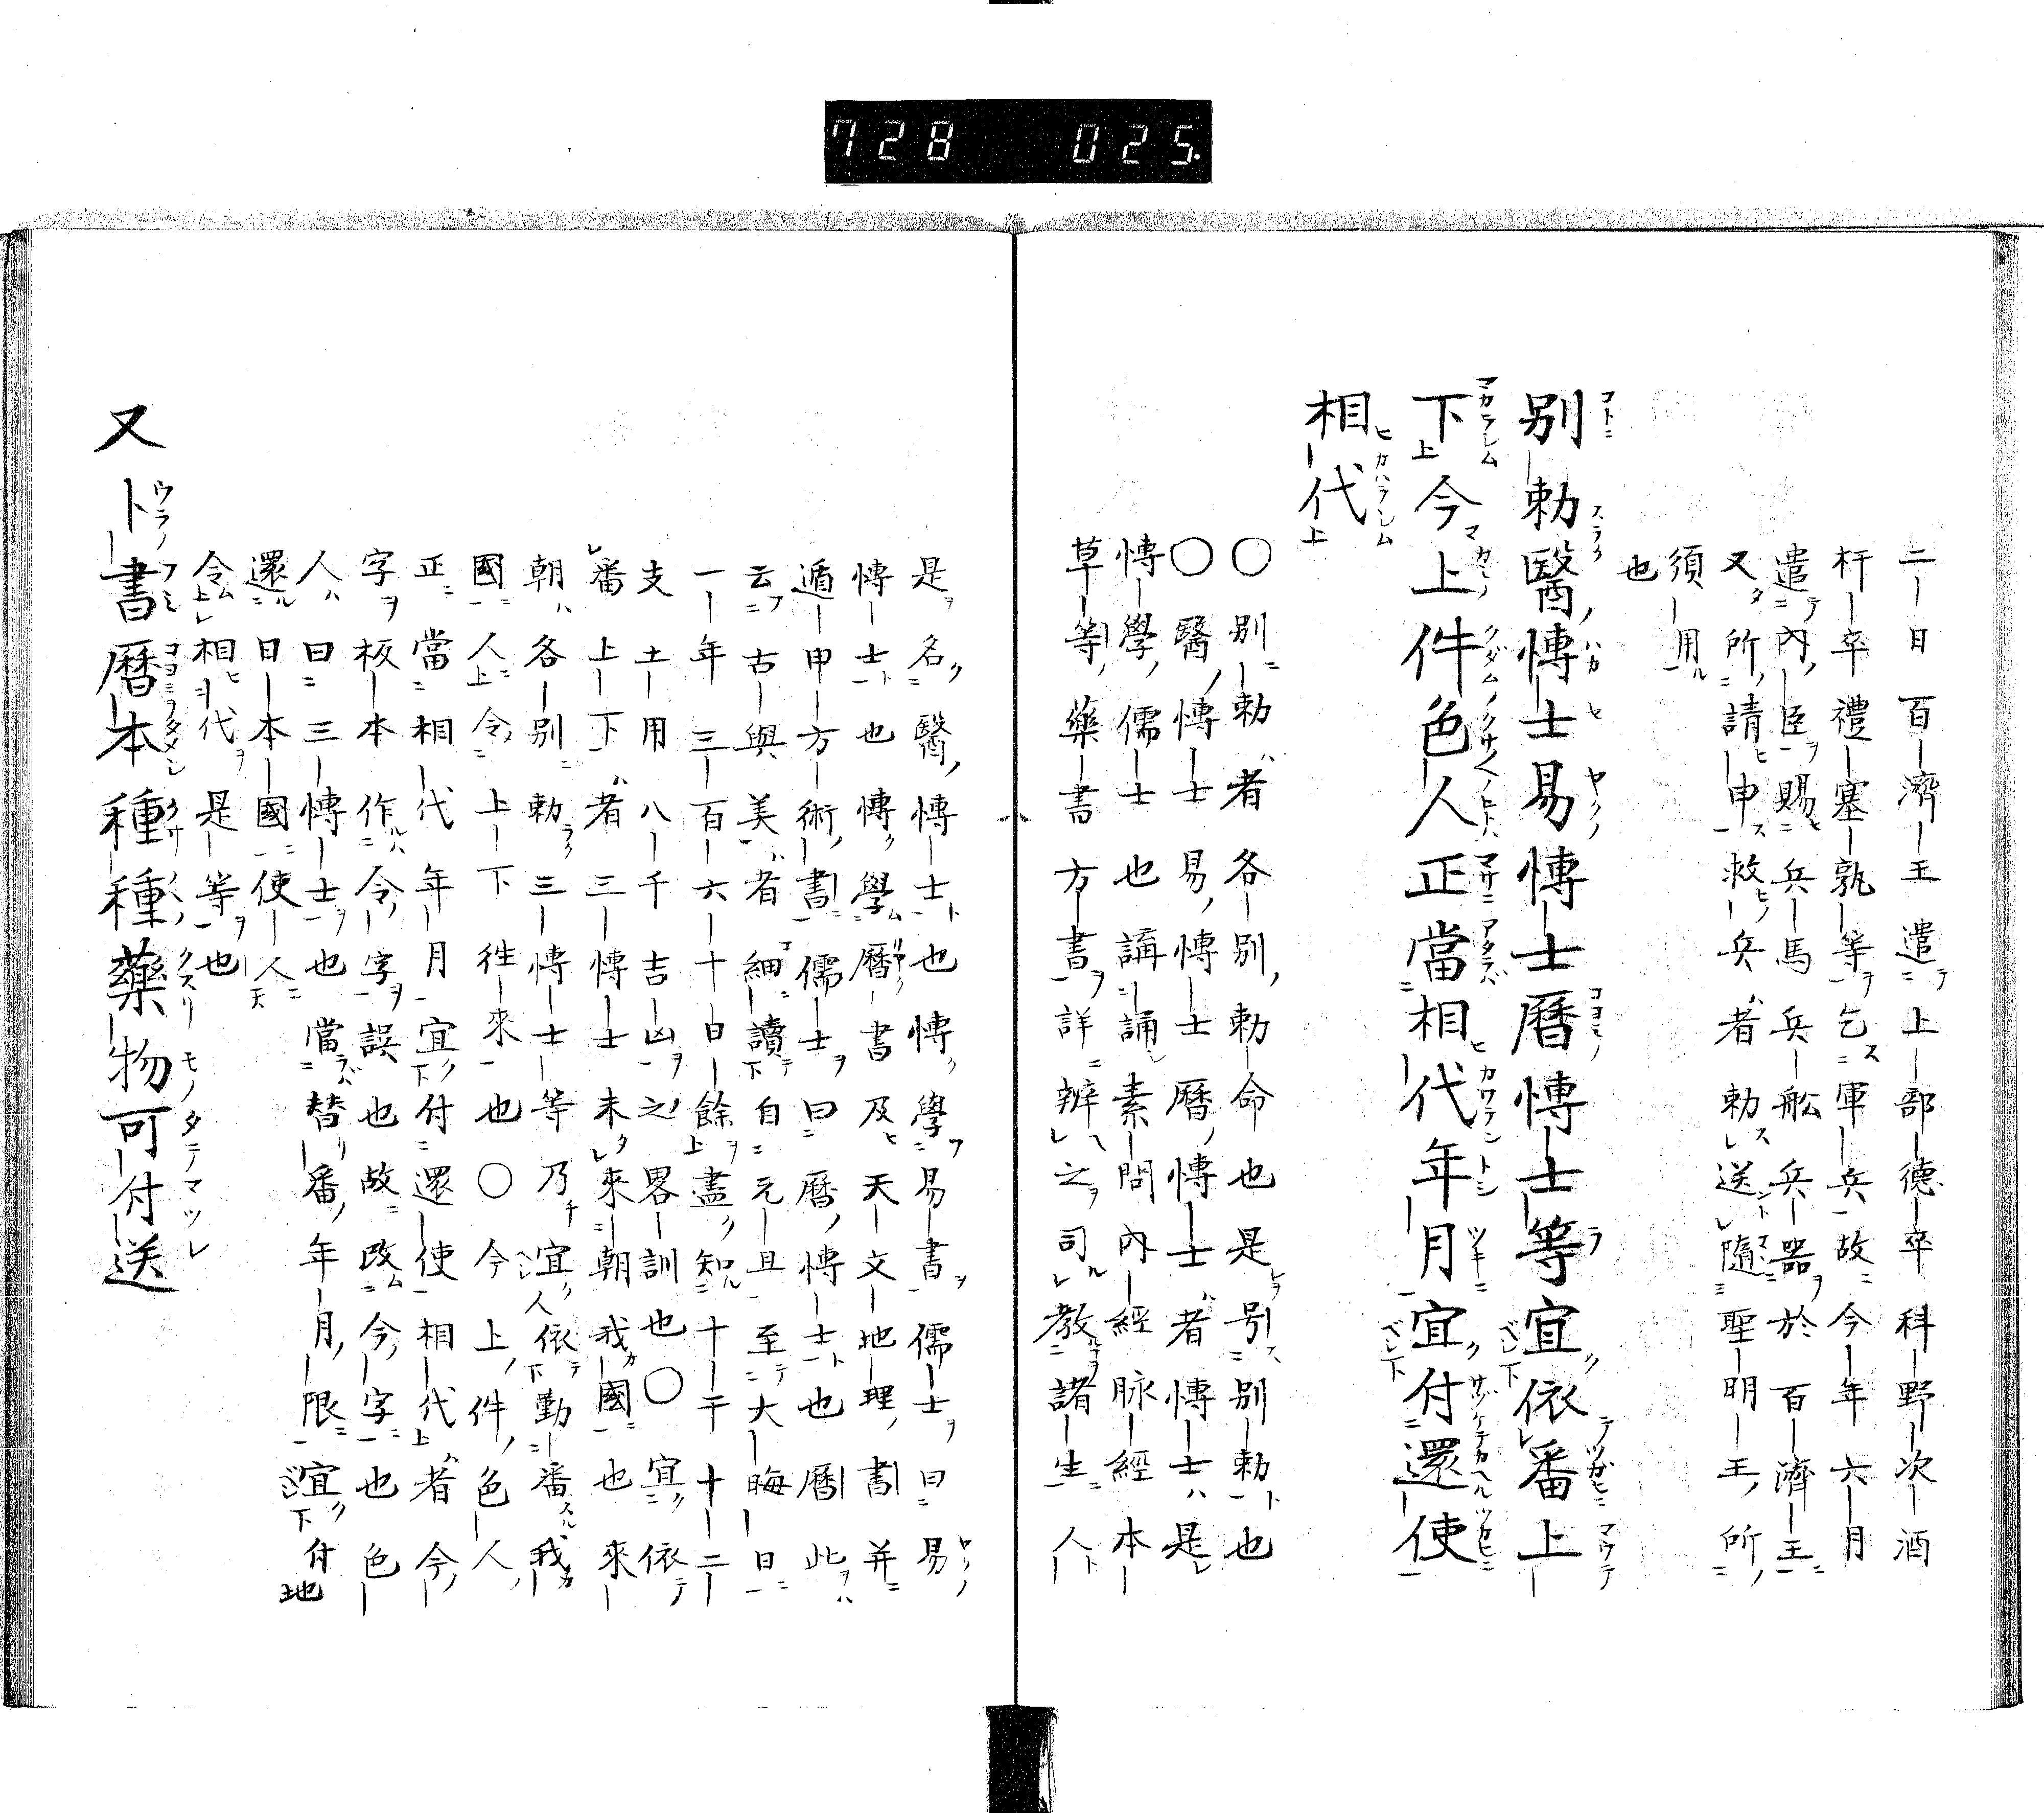 728 025
二日百濟王遣上部德卒科野次酒
杆卒禮塞孰等乞軍兵故今年六月
遣內臣賜兵馬兵舩兵器於百濟王
又所請申救兵者勅送隨聖明王所
須用
也
別勅醫愽士易愽士曆愽士等宜依番上
下今上件色人正當相代年月宜付還使
相代
〇別勅者各別勅命也是号別勅也
〇醫愽士易愽士曆愽士者愽士是
愽學儒士也講誦素問內經脉經本
草等藥書方書詳辨之司教諸生人
是名醫愽士也愽學易書儒士曰易
愽士也愽學曆書及天文地理書并
遁甲方術書儒士曰曆愽士也曆此
云古與美者細讀自元旦至大晦日
一年三百六十日餘盡知十干十二
支土用八千吉凶之畧訓也〇宜依
番上下者三愽士未來朝我國也來
朝各別勅三愽士等乃宜依勤番我
國人令上下徃來也〇今上件色人
正當相代年月宜付還使相代者今
字板本作令字誤也故改今字也色
人曰三愽士也當替番年月限宜付
還日本國使人
令相代是等也
又卜書曆本種種藥物可付送